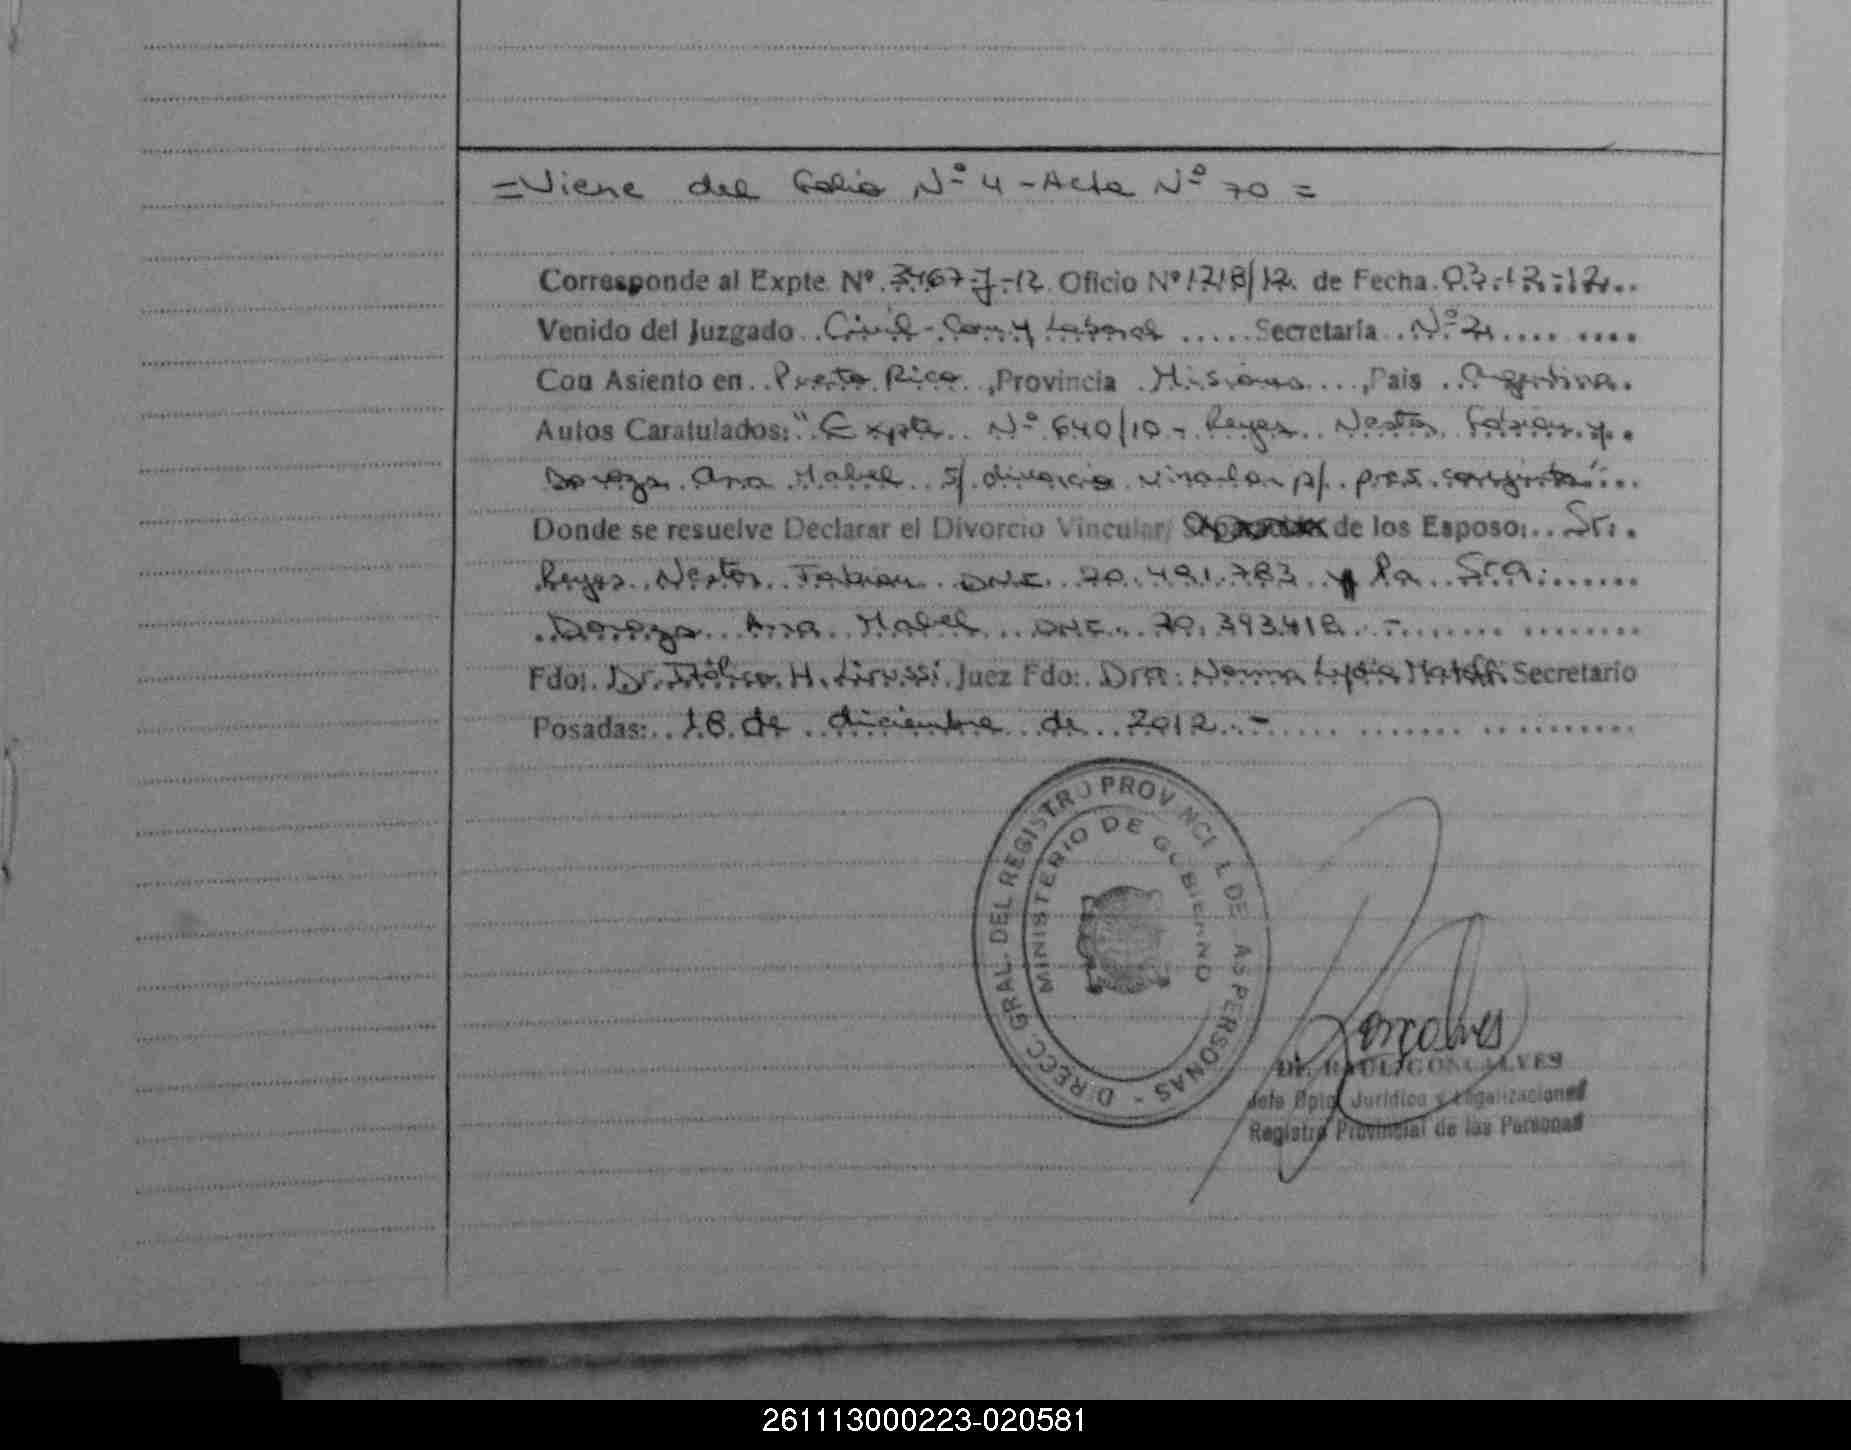 =Viene del Folio Nº 4 - Acta Nº 70 =
Corresponde al Expte Nº 3467-J-12 Oficio Nº 1218/12. de Fecha 03-12-12
Venido del Juzgado Civil - Com. y Laboral Secretaría Nº 2
Con Asiento en Puerto Rico, Provincia Misiones, Pais Argentina.
Autos Caratulados: "Expte Nº 640/10 - Reyes Nestor Fabian y
Ana Mabel s/ divorcio vincular p/ pres. conjunta"
Donde se resuelve Declarar el Divorcio Vincular/ de los Esposo: Sr.
Reyes Nestor Fabian DNI. 20.491.783 y la Sra.
Ana Mabel DNI. 20.393.418 -
Fdo: Dr. H. Juez Fdo: Dra. Norma Lydia Secretario
Posadas: 18 de diciembre de 2012 -
DIRECC. GRAL. DEL REGISTRO PROVINCI L DE AS PERSONAS -
MINISTERIO DE GOBIERNO
Goncalves
Dr. RAUL GONCALVES
Jefe Dpto. Jurídico y Legalizaciones
Registro Provincial de las Personas
261113000223-020581